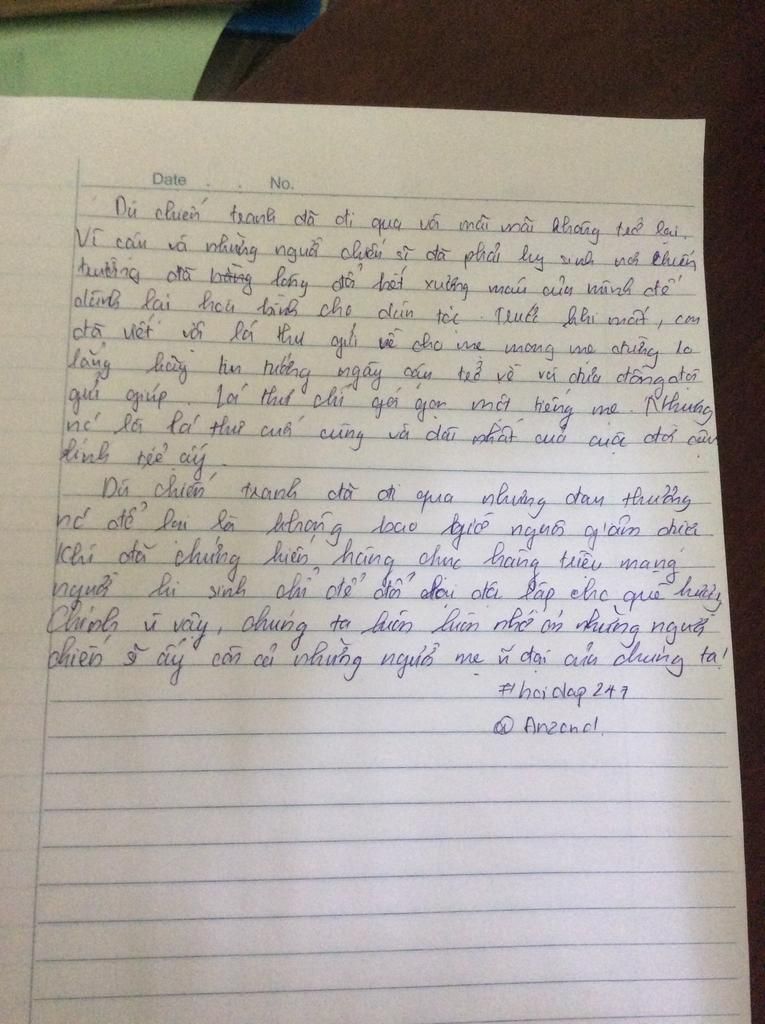 Date . . No.
Dù chiến tranh đã đi qua và mãi mãi không trở lại.
Vì còn và những người chiến sĩ đã phải hy sinh nơi chiến
trường đã lòng đổ hết xương máu của mình để
dành lại hoà bình cho dân tộc. Trước khi mất, con
đã viết vời lá thư gửi về cho mẹ mong mẹ đừng lo
lắng hãy tin tưởng ngày con trở về và đứa đồng đội
gửi giúp. Lá thư chỉ gói gọn một tiếng mẹ. Nhưng
nó là lá thư cuối cùng và dài nhất của cuộc đời cậu
lính trẻ ấy.
Dù chiến tranh đã đi qua nhưng đau thương
nó để lại là không bao giờ người giảm
Khi đã chứng kiến hàng chục hàng triệu mạng
người hi sinh chỉ để đổi lại độc lập cho quê hương
Chính vì vậy, chúng ta luôn luôn nhớ ơn những người
chiến sĩ ấy còn cả những người mẹ vĩ đại của chúng ta!
#hoidap247
@ Anzend.